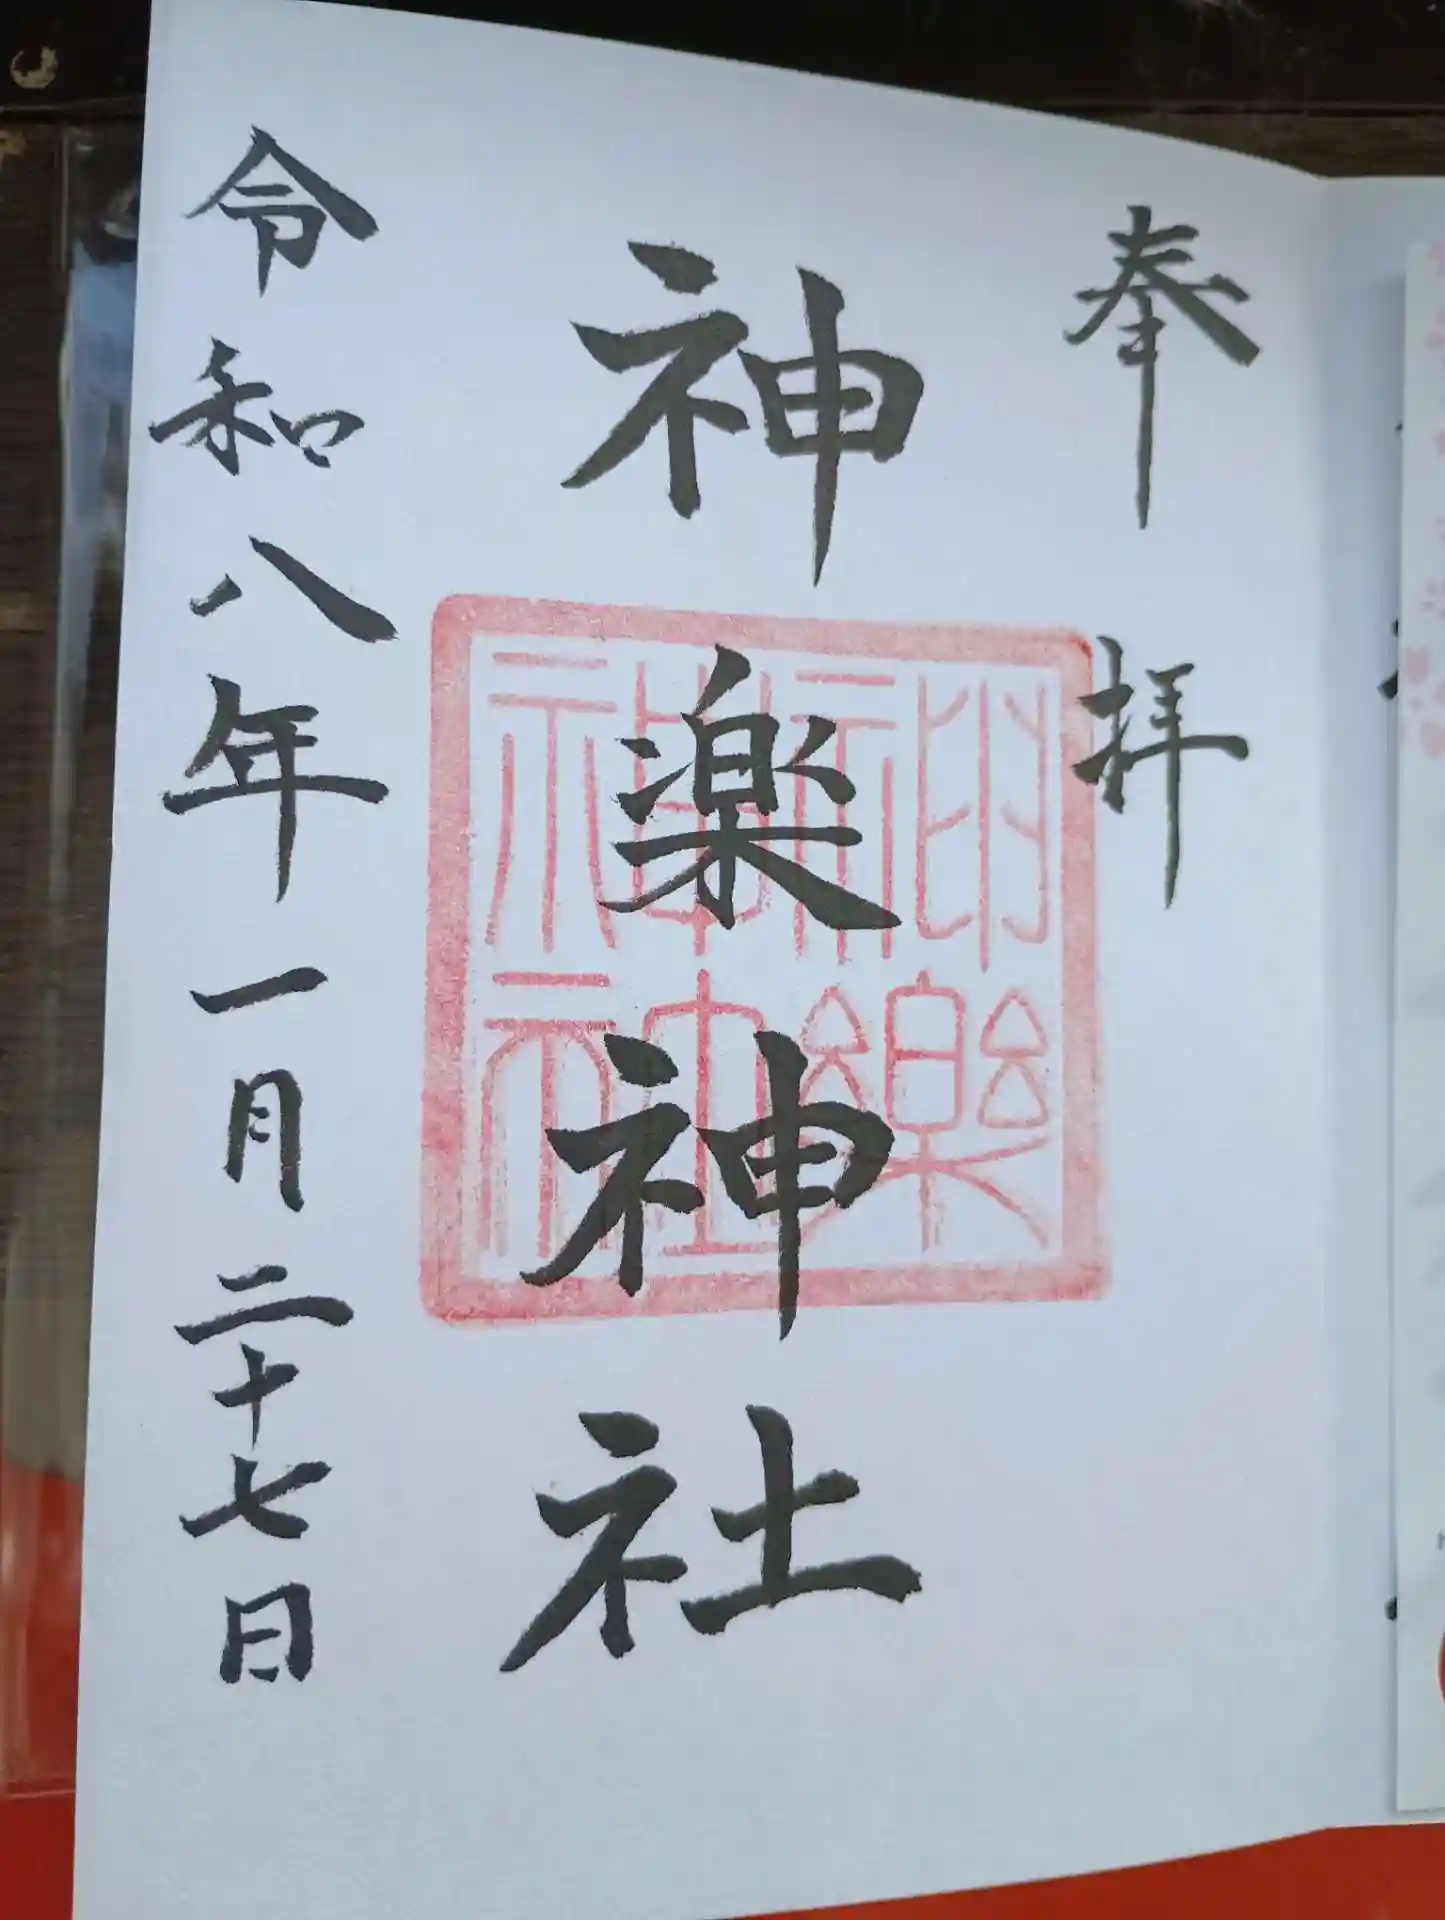 奉拝
神楽神社
神樂神社
令和八年一月二十七日